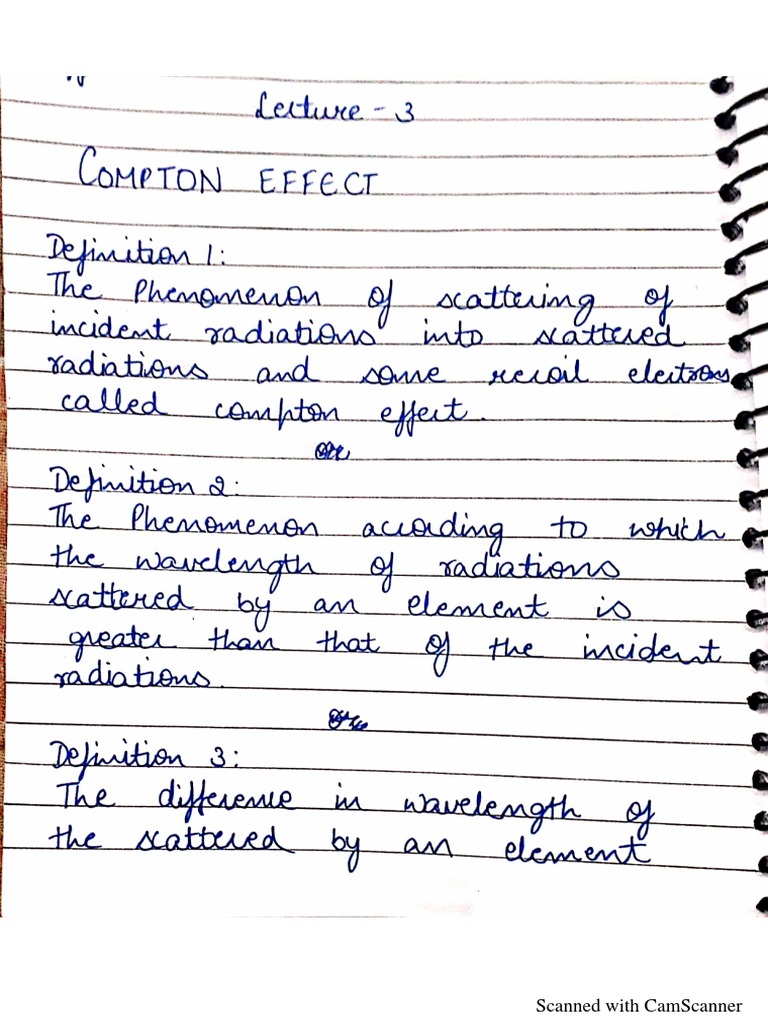 Lecture - 3
COMPTON EFFECT
Definition 1:
The Phenomenon of scattering of
incident radiations into scattered
radiations and some recoil electrons
called compton effect.
Or
Definition 2:
The Phenomenon according to which
the wavelength of radiations
scattered by an element is
greater than that of the incident
radiations.
Or
Definition 3:
The difference in wavelength of
the scattered by an element
Scanned with CamScanner